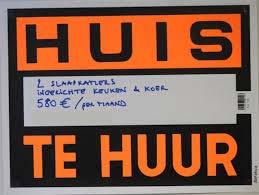 HUIS
2 SLAAPKAMERS
INGERICHTE KEUKEN & KOER
580 € / PER MAAND
TE HUUR